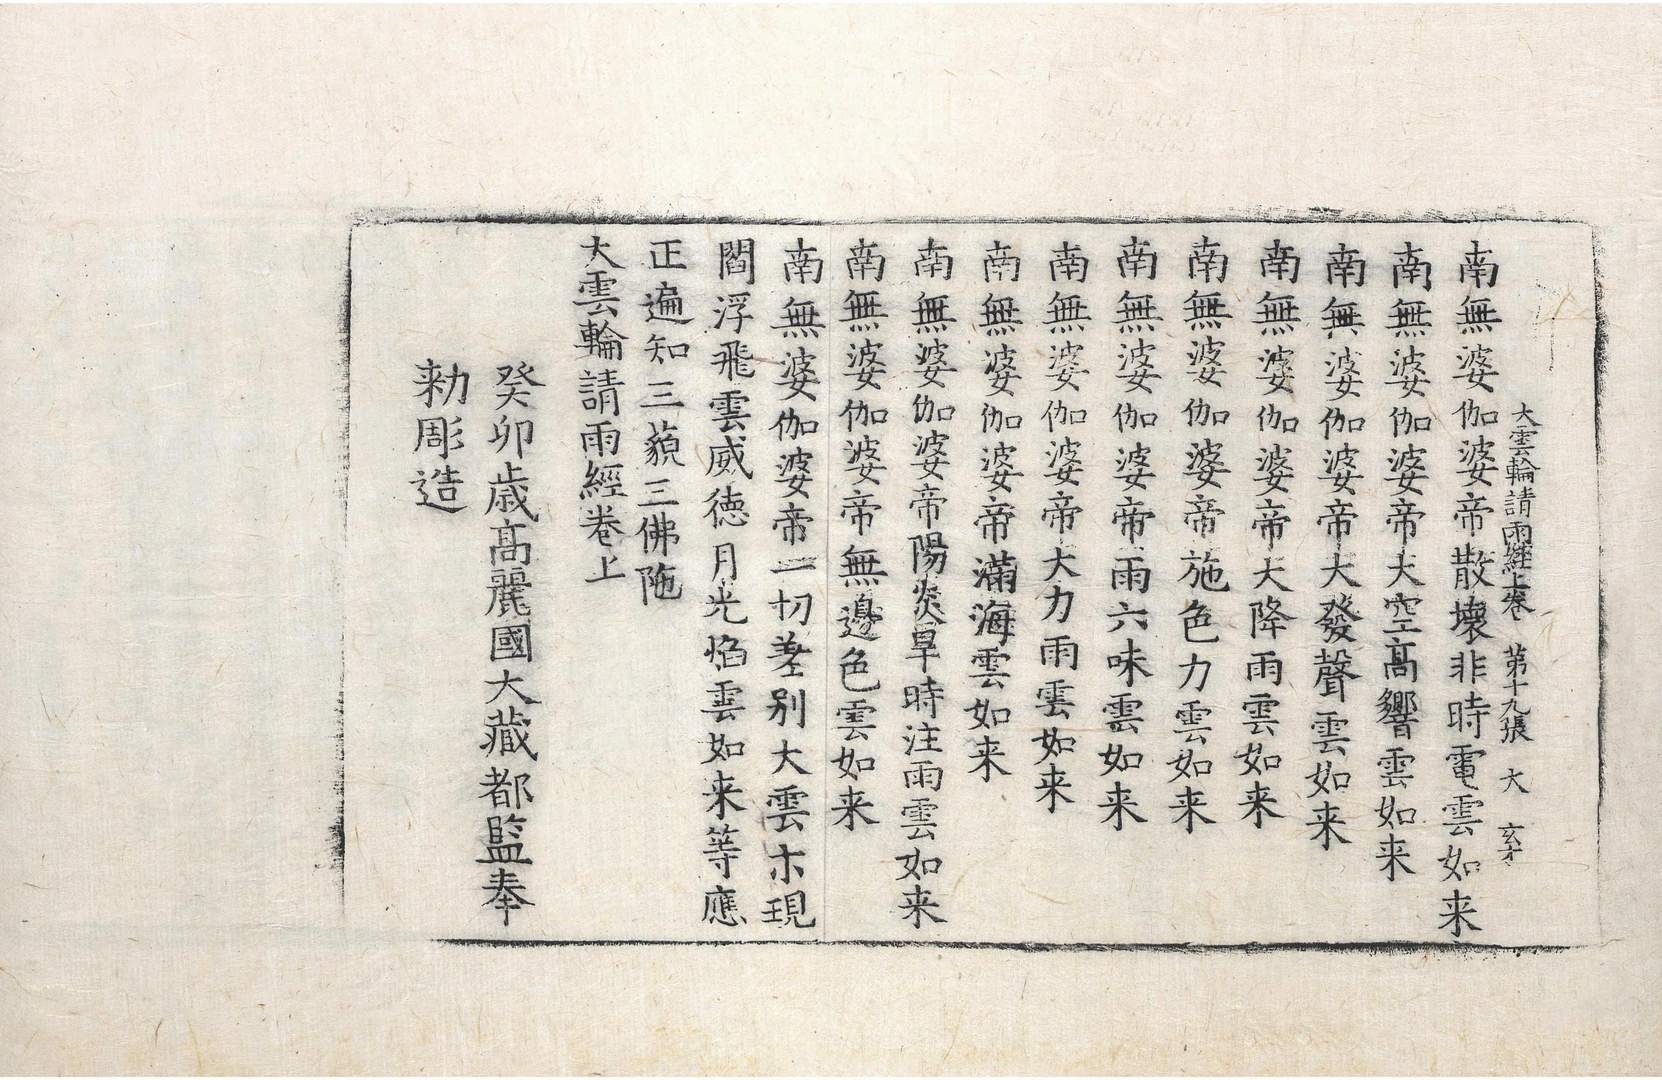 大雲輪請雨經上卷 第十九張 大 玄才
南無婆伽婆帝散壞非時電雲如来
南無婆伽婆帝大空高響雲如来
南無婆伽婆帝大發聲雲如来
南無婆伽婆帝大降雨雲如来
南無婆伽婆帝施色力雲如来
南無婆伽婆帝雨六味雲如来
南無婆伽婆帝大力雨雲如来
南無婆伽婆帝滿海雲如来
南無婆伽婆帝陽炎旱時注雨雲如来
南無婆伽婆帝無邊色雲如来
南無婆伽婆帝一切差别大雲示現
閻浮飛雲威德月光焰雲如来等應
正遍知三藐三佛陁
大雲輪請雨經卷上
癸卯歳高麗國大藏都監奉
勑彫造